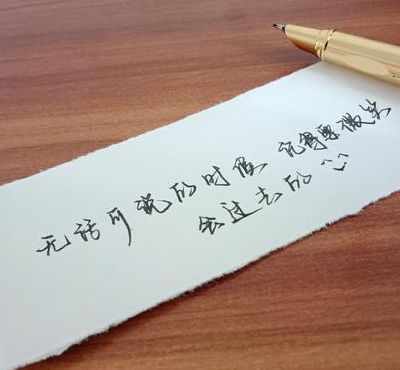 无话可说的时候 记得要微笑
会过去的